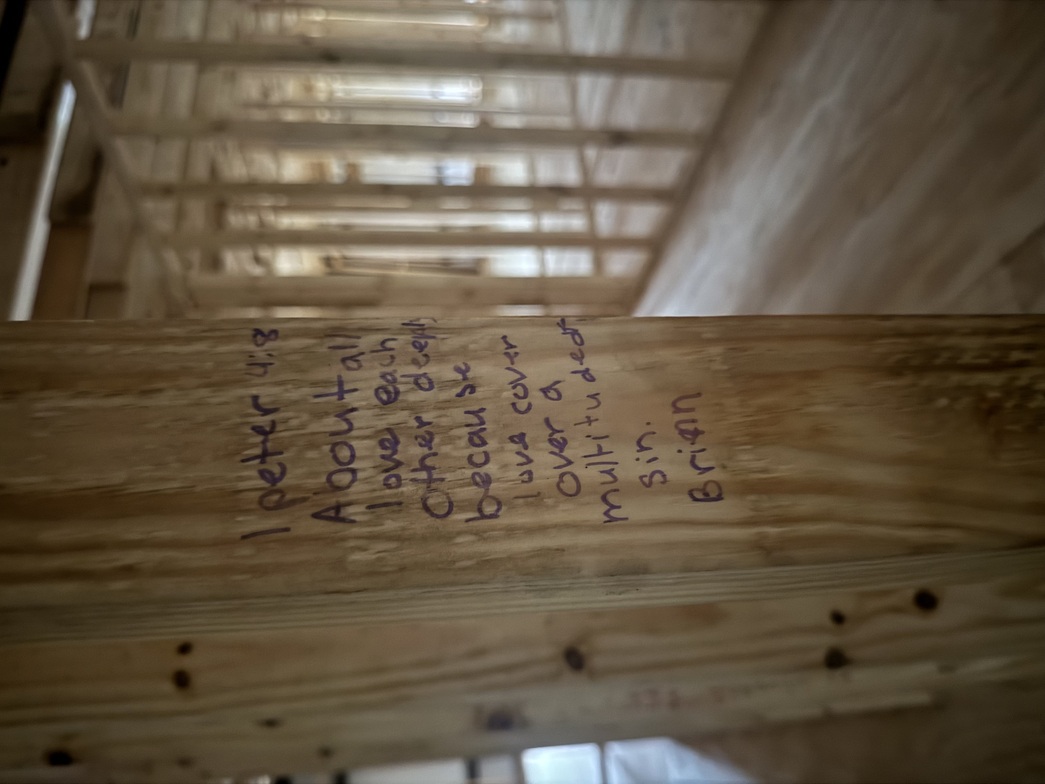 1 peter 4:8
About all
love each
Other deeply
because
love cover
over a
multitu deof
sin.
Brian